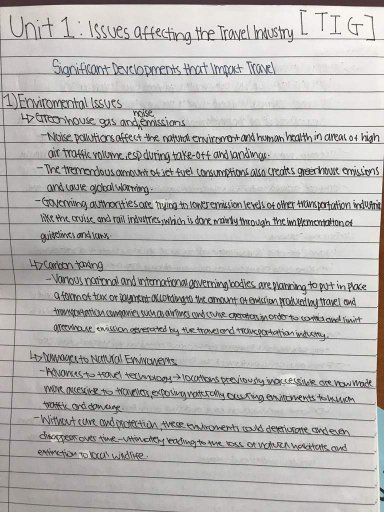 Unit 1: Issues affecting the Travel Industry [TIG]
Significant Developments that Impact Travel
1) Enviromental Issues
↳ Greenhouse gas and noise emissions
- Noise pollutions affect the natural enviroment and human health in areas of high
air traffic volume, esp during take-off and landings.
- The tremendous amount of jet fuel consumptions also creates greenhouse emissions
and cause global warming.
- Governing authorities are trying to lower emission levels of other transportation industries
like the cruise and rail industries, which is done mainly through the implementation of
guidelines and laws
↳ Carbon taxing
- Various national and international governing bodies are planning to put in place
a form of tax or payment according to the amount of emission produced by travel and
transportation companies such as airlines and cruise operators in order to control and limit
greenhouse emission generated by the travel and transportation industry.
↳ Damages to Natural Enviroments
- Advances to travel technology → locations previously inaccessible are now made
more accessible to travellers, exposing naturally occuring enviroments to human
traffic and damage.
- Without care and protection, these enviroments could deteriorate and even
disappear over time - ultimately leading to the loss of natural habitats and
extinction to local wildlife.